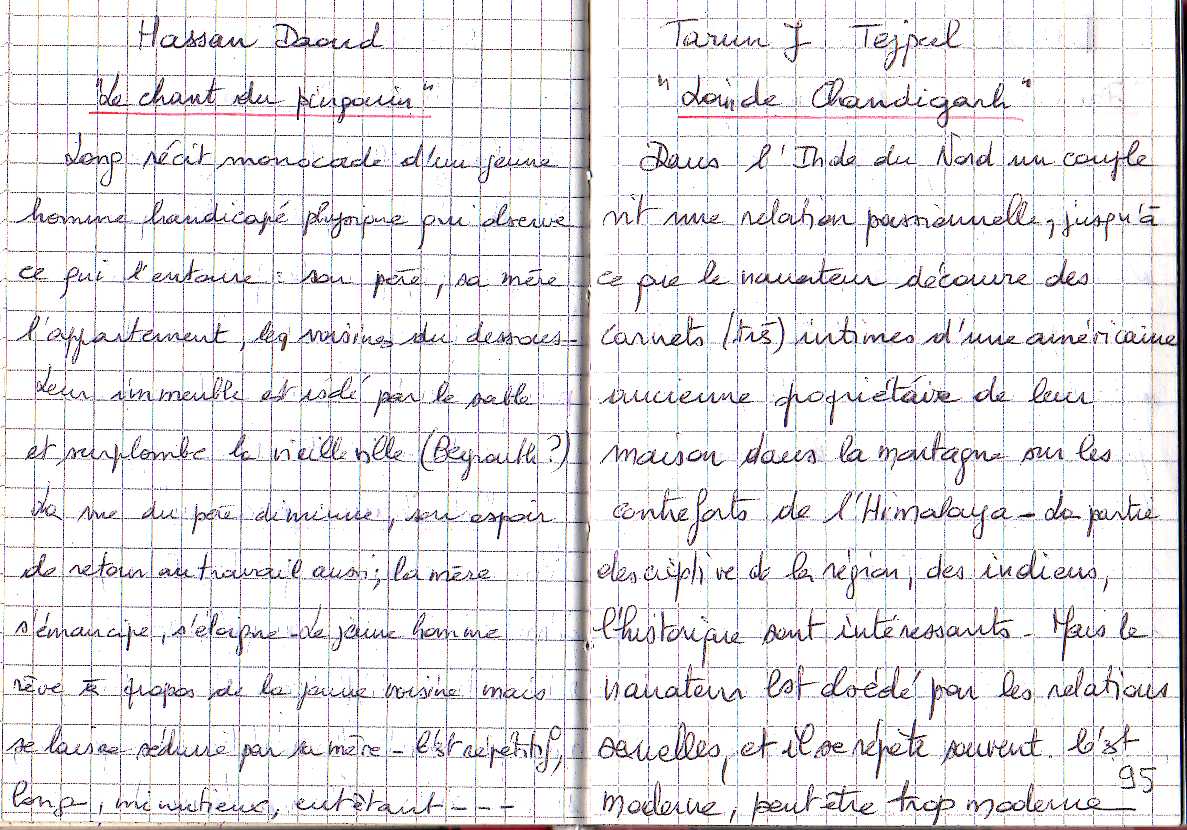 Hassan Daoud
"Le chant du pingouin"
Long récit monocade d'un jeune
homme handicapé physique qui observe
ce qui l'entoure : son père, sa mère
l'appartement, les voisines du dessous -
Leur immeuble est isolé par le sable
et surplombe la vieille ville (Beyrouth?)
La vue du père diminue, son espoir
de retour au travail aussi ; la mère
s'émancipe, s'éloigne - Le jeune homme
rêve à propos de la jeune voisine mais
se laisse séduire par sa mère - C'est répétitif,
long, minutieux, entêtant - - -
Tarun J Tejpal
"Loin de Chandigarh"
Dans l'Inde du Nord un couple
vit une relation passionnelle, jusqu'à
ce que le narrateur découvre des
carnets (très) intimes d'une américaine
ancienne propriétaire de leur
maison dans la montagne sur les
contreforts de l'Himalaya - La partie
descriptive de la région, des indiens,
l'historique sont intéressants - Mais le
narrateur est obsédé par les relations
sexuelles, et il se répète souvent. C'est
moderne, peut être trop moderne
95